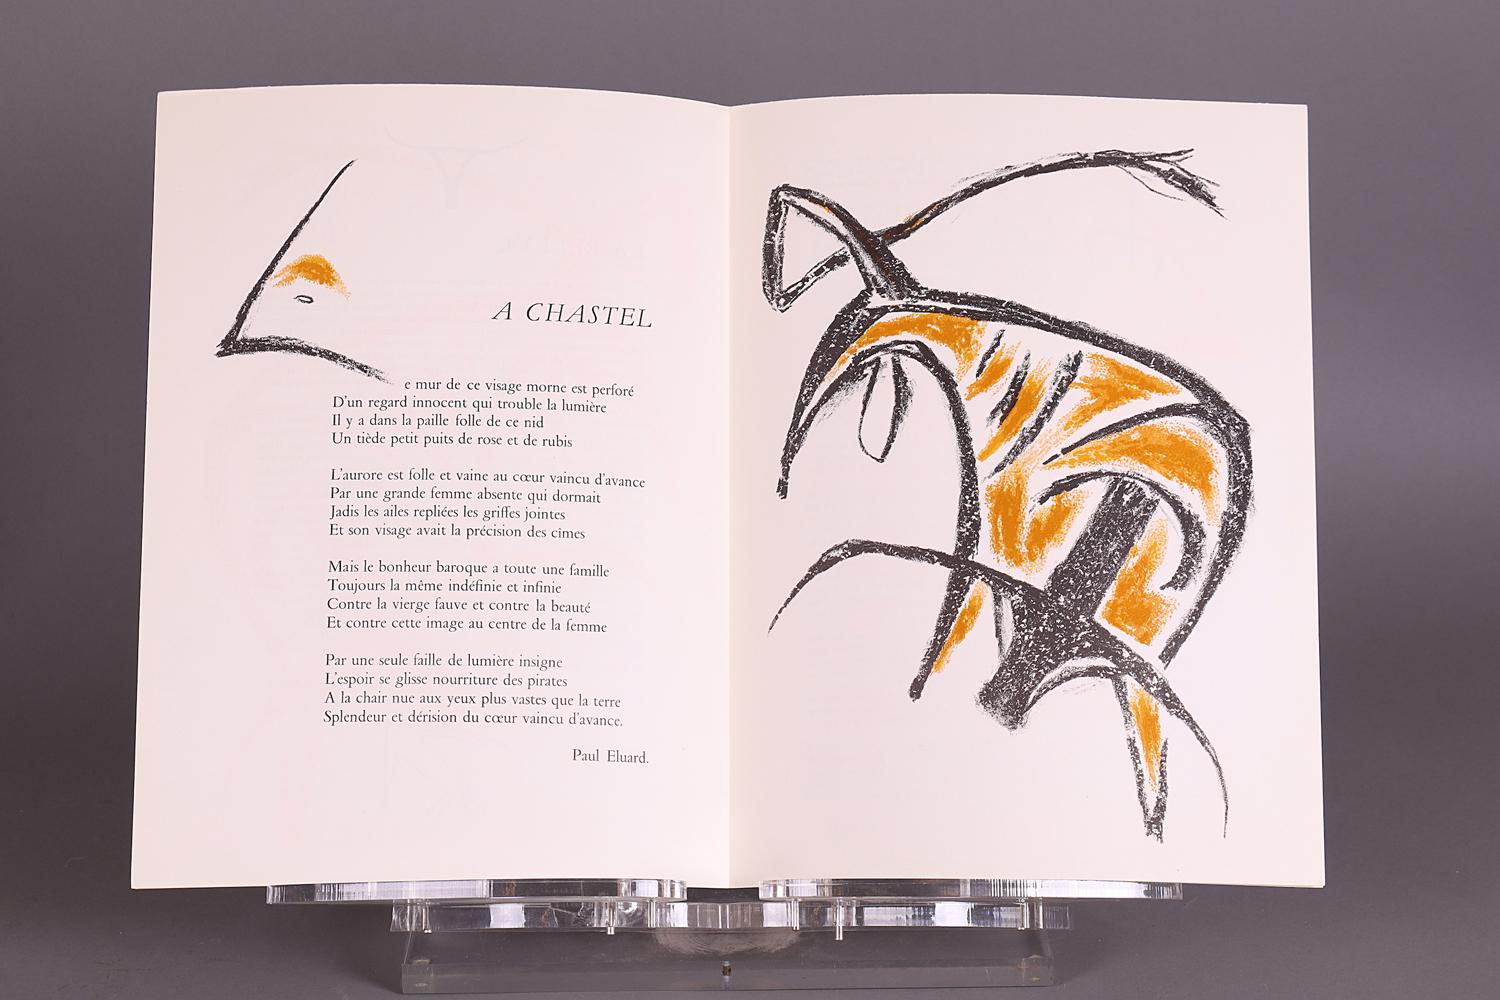 A CHASTEL
e mur de ce visage morne est perforé
D'un regard innocent qui trouble la lumière
Il y a dans la paille folle de ce nid
Un tiède petit puits de rose et de rubis
L'aurore est folle et vaine au cœur vaincu d'avance
Par une grande femme absente qui dormait
Jadis les ailes repliées les griffes jointes
Et son visage avait la précision des cîmes
Mais le bonheur baroque a toute une famille
Toujours la même indéfinie et infinie
Contre la vierge fauve et contre la beauté
Et contre cette image au centre de la femme
Par une seule faille de lumière insigne
L'espoir se glisse nourriture des pirates
A la chair nue aux yeux plus vastes que la terre
Splendeur et dérision du cœur vaincu d'avance.
Paul Eluard.